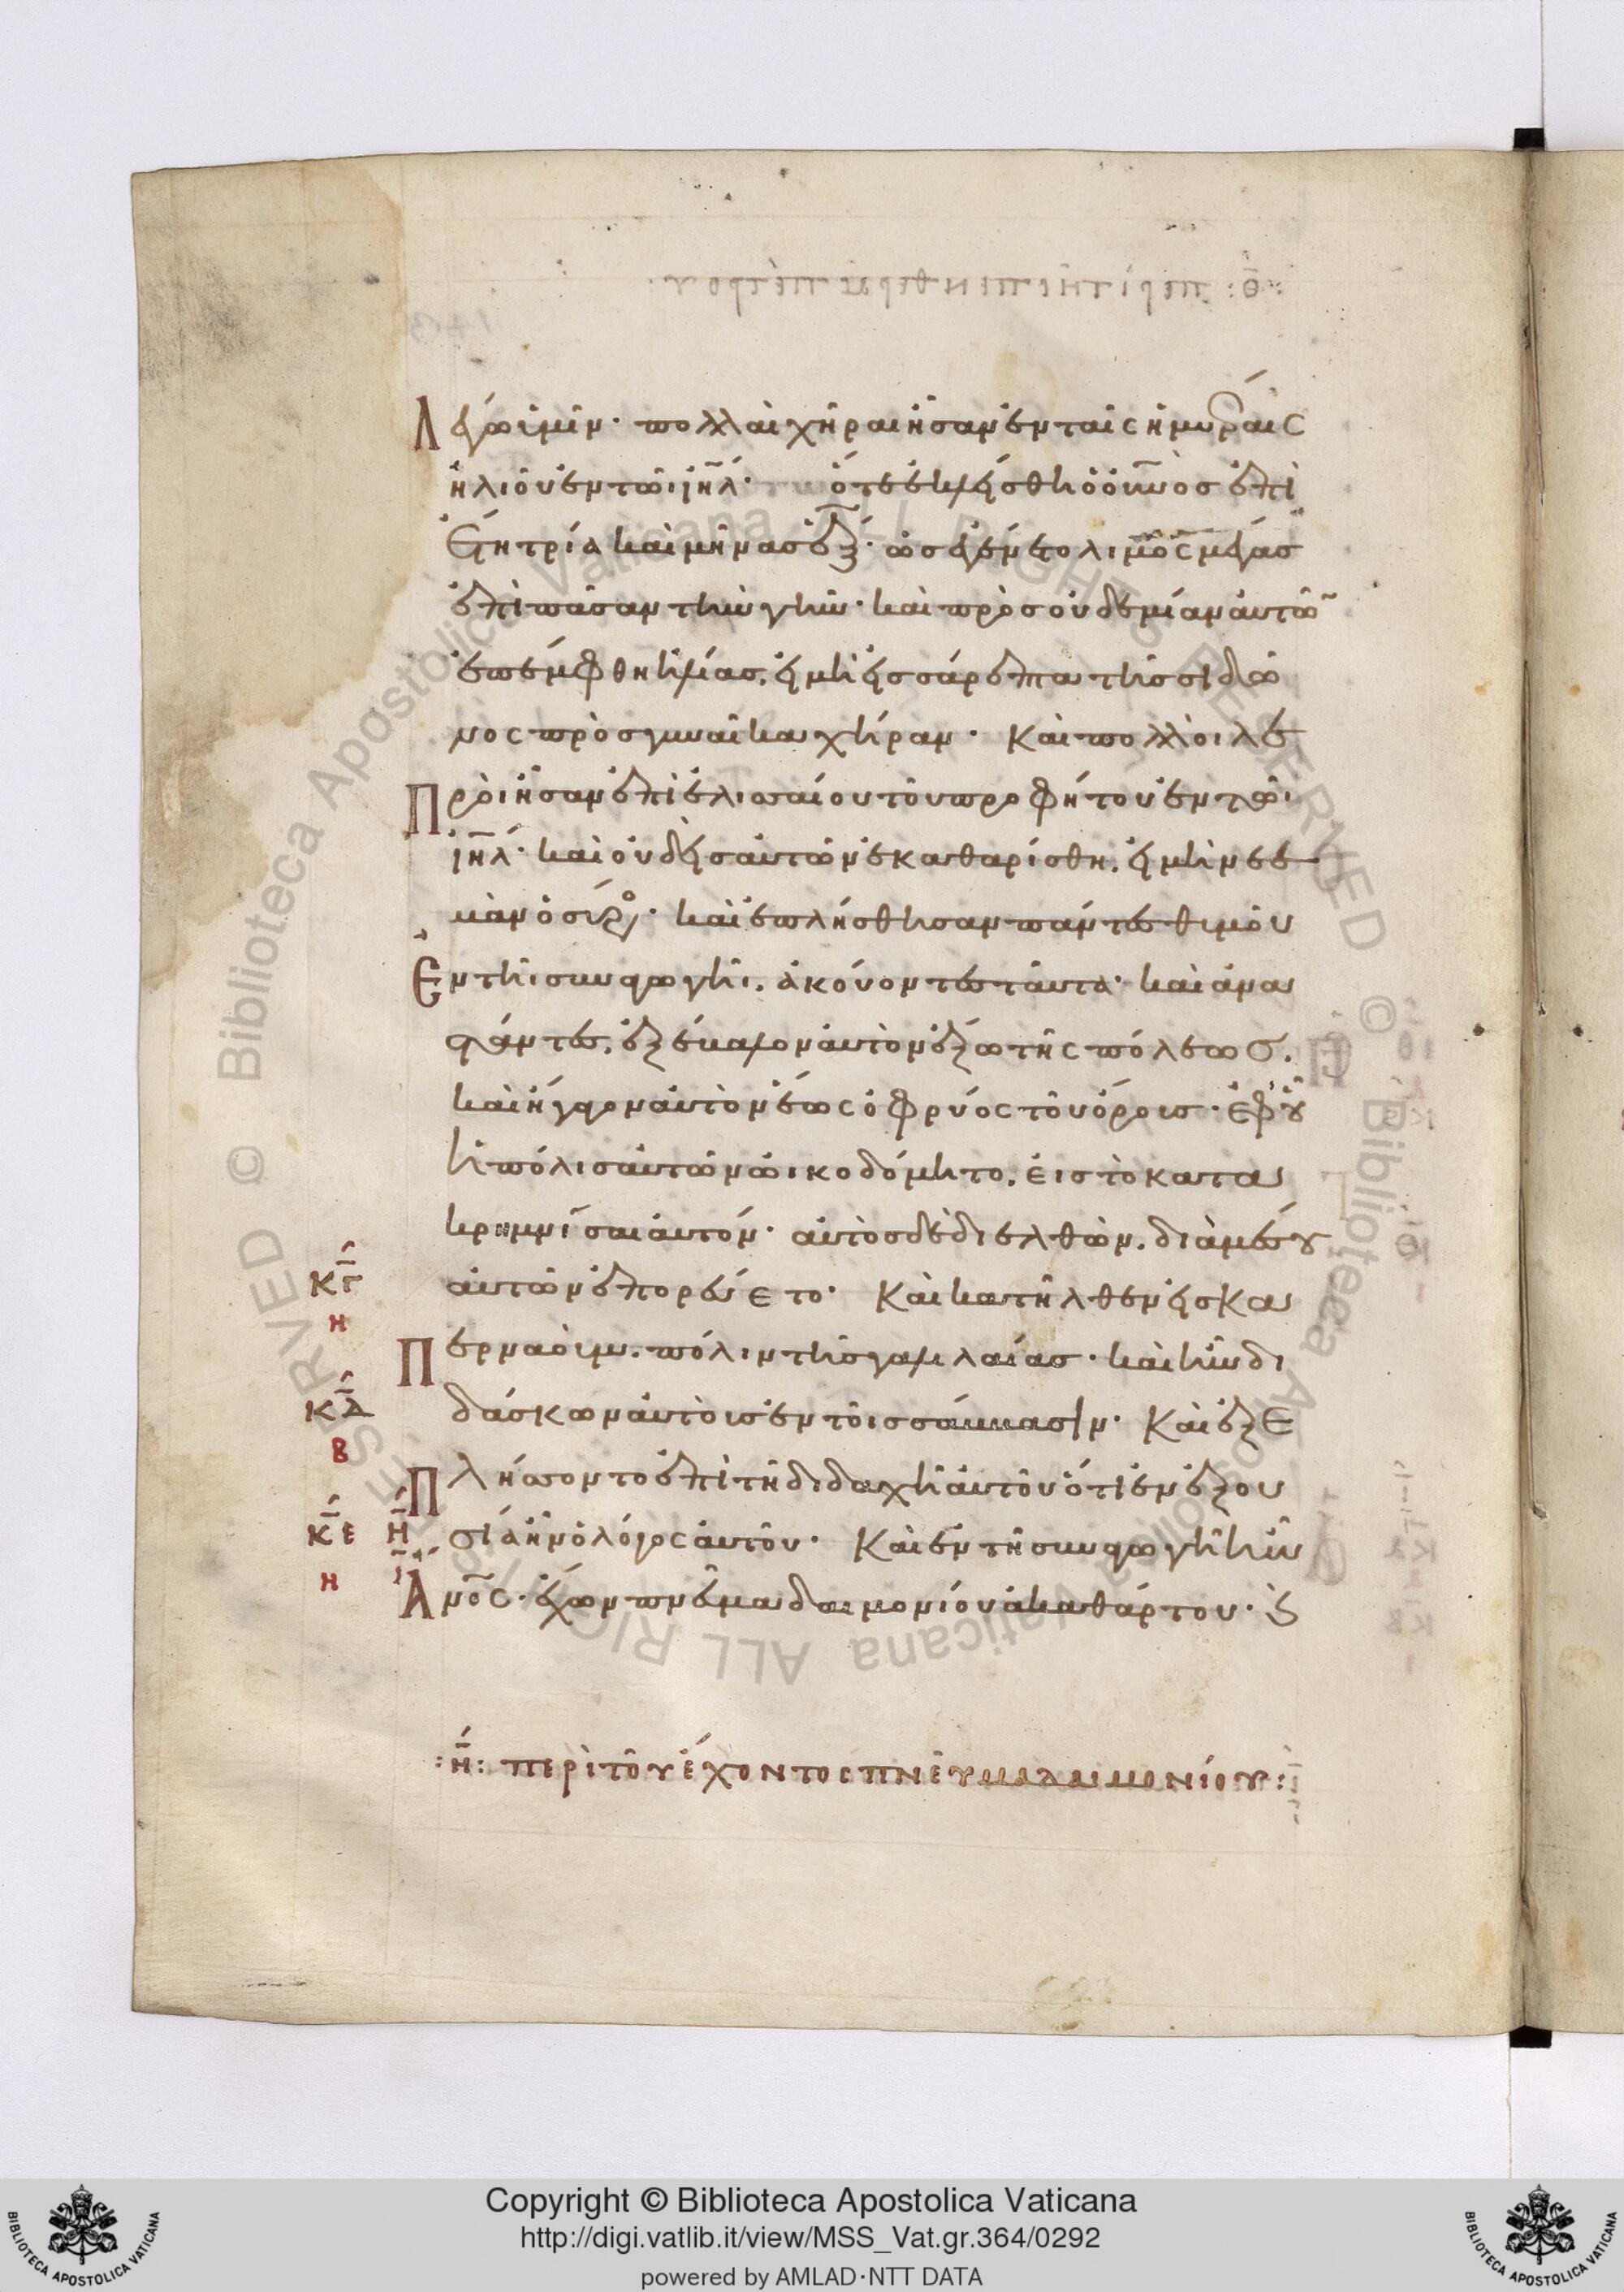 Λέγω ὑμῖν· πολλαὶ χῆραι ἦσαν ἐν ταῖς ἡμέραις
ἠλιοῦ ἐν τῶι ι̅η̅λ̅· ὅτε ἐκλείσθη ὁ ὀυ̅ν̅ο̅ς ἐπὶ
ἔτη τρία καὶ μῆνας ἕξ· ὡς ἐγένετο λιμὸς μέγας
ἐπὶ πᾶσαν τὴν γῆν· καὶ πρὸς οὐδεμίαν αὐτῶ̅
ἐπέμφθη ἠλίας. εἰ μὴ εἰς σάρεπτα τῆς σιδῶ
νος πρὸς γυναῖκα χήραν· Καὶ πολλοὶ λε
προὶ ἦσαν ἐπὶ ἐλισσαίου τοῦ προφήτου ἐν τῶι
ι̅η̅λ̅· καὶ οὐδεὶς αὐτῶν ἐκαθαρίσθη. εἰ μὴ νεε
μὰν ὁ σύρος· καὶ ἐπλήσθησαν πάντες θυμοῦ
ἐν τῆι συναγωγῆι. ἀκούοντες ταῦτα· καὶ ἀνα
στάντες. ἐξέβαλον αὐτὸν ἔξω τῆς πόλεως.
καὶ ἤγαγον αὐτὸν ἕως ὀφρύος τοῦ ὄρους· ἐφ' οὗ
ἡ πόλις αὐτῶν ὠικοδόμητο. εἰς τὸ κατα
κρημνῖσαι αὐτόν· αὐτὸς δὲ διελθὼν. διὰ μέσου
αὐτῶν ἐπορεύετο· Καὶ κατῆλθεν εἰς κα
ΚΓ
Η
περναοὺμ. πόλιν τῆς γαλιλαίας· καὶ ἦν δι
ΚΔ
δάσκων αὐτοὺς ἐν τοῖς σάββασιν· Καὶ ἐξε
Β
πλήσσοντο ἐπὶ τῆ διδαχῆ αὐτοῦ ὅτι ἐν ἐξου
ΚΕ Η
σία ἦν ὁ λόγος αὐτοῦ· Καὶ ἐν τῆ συναγωγῆ ἦν
Η
ἄν̅ο̅ς· ἔχων πνεῦμα δαιμονίου ἀκαθάρτου· ϗ
:Η: περὶ τοῦ ἔχοντος πνεῦμα δαιμονίου:
Copyright © Biblioteca Apostolica Vaticana
http://digi.vatlib.it/view/MSS_Vat.gr.364/0292
powered by AMLAD·NTT DATA
BIBLIOTECA APOSTOLICA VATICANA
BIBLIOTECA APOSTOLICA VATICANA